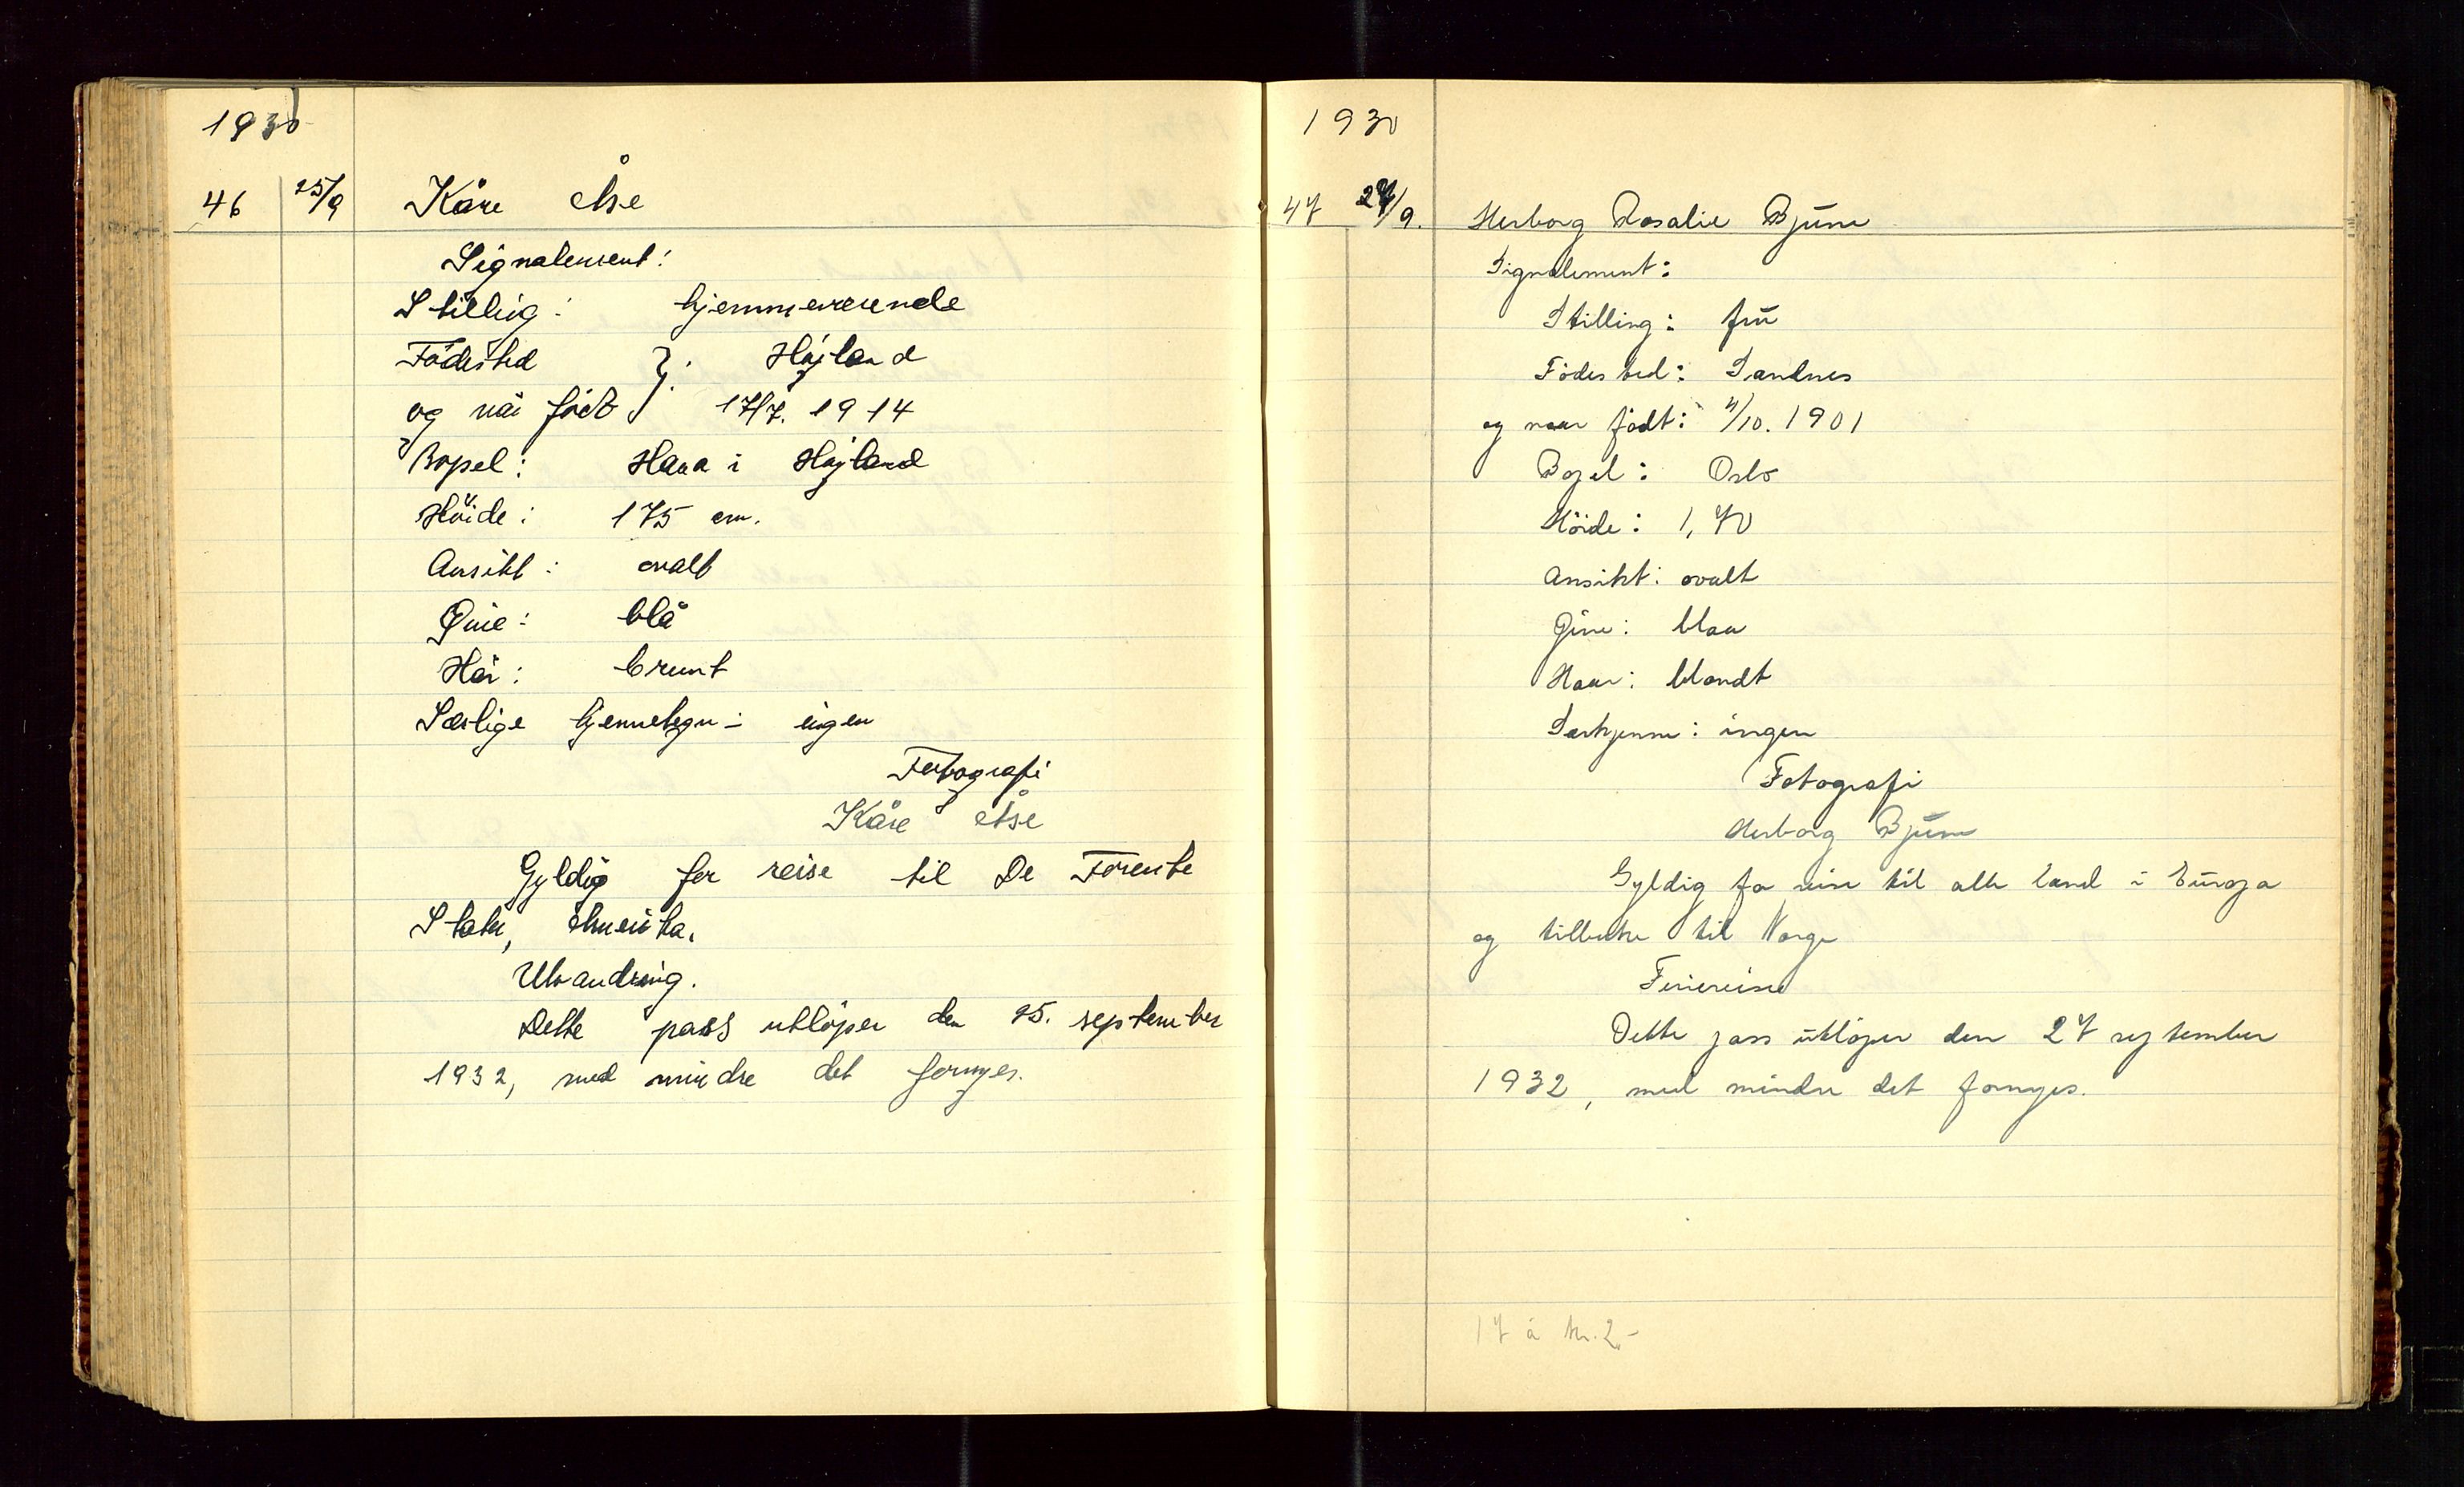 1930
46 25/9 Kåre Åse
Signalement:
Stilling: hjemmeværende
Fødested } : Høyland
og når født } 17/7. 1914
Bopel: Hana i Høyland
Høide: 175 cm.
Ansikt: ovalt
Øine: blå
Hår: brunt
Særlige kjennetegn: ingen
Fotografi
Kåre Åse
Gyldig for reise til De Forente
Stater, Amerika.
Utvandring.
Dette pass utløper den 25. september
1932, med mindre det fornyes.
1930
47 27/9. Herborg Rosalie Bjune
Signalement:
Stilling: frü
Fødested: Sandnes
og naar født: 4/10. 1901
Bopel: Oslo
Høide: 1,70
Ansikt: ovalt
Øine: blaa
Haar: blondt
Særkjenne: ingen
Fotografi
Herborg Bjune
Gyldig for reise til alle land i Europa
og tilbake til Norge
Feriereise
Dette pass utløper den 27 september
1932, med mindre det fornyes.
17 á kr. 2,-